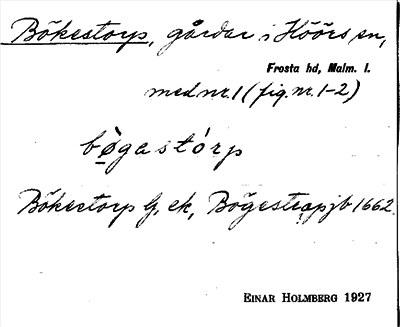 Bökestorp, gårdar i Höörs sn,
Frosta hd, Malm. l.
med nr. 1 (fig. nr. 1-2)
bø̀gastórp
Bökestorp G, ek, Bögestrap jb 1662.
EINAR HOLMBERG 1927